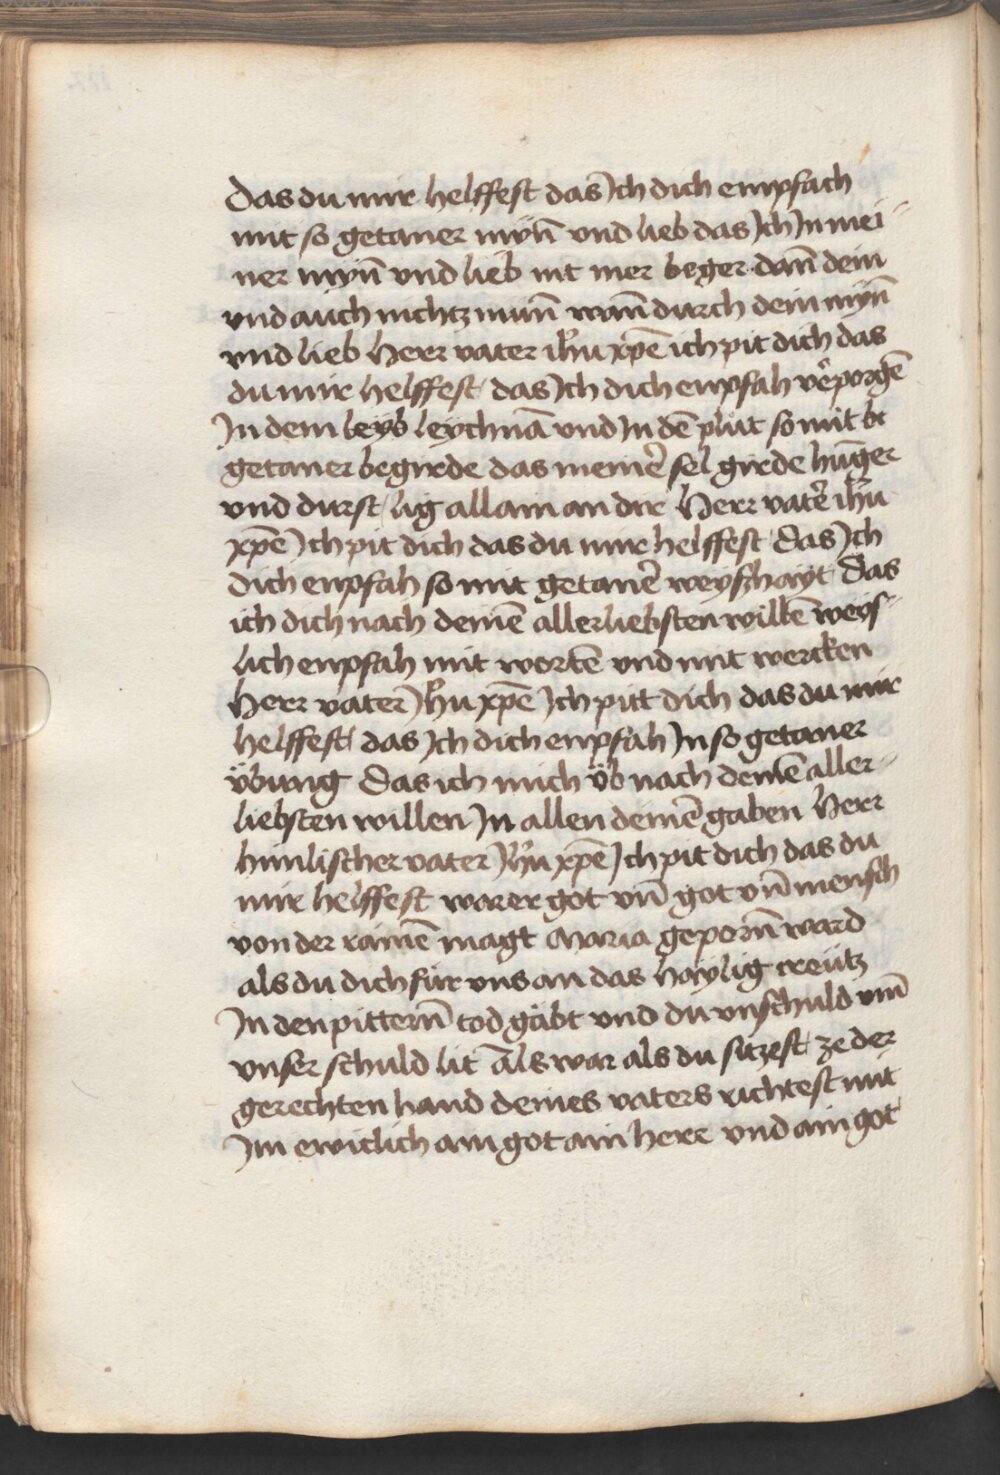 Das du mir helffest das Ich dich empfach
mit so getaner mÿn̄ vnd lieb das Ich In mei-
ner mÿn̄ vnd lieb nit mer beger dan̄ dein
vnd auch nichtz mŭn̄ wan̄ durch dein mÿn̄
vnd lieb Herr vater ihu xpē ich pit dich das
du mir helffest das Ich dich enpfah v̓porgē
In dem leyb leychnā vnd In dē plut so mit
getaner begirde das meinē sel girde hung̓er
vnd durst lig allain an dir Herr vater̓ ihu
xpē Ich pit dich das du mir helffest das Ich
dich enpfah so mit getaner̓ weyszhayt das
ich dich nach deinē allerliebsten willē weys-
lich empfah mit wortē vnd mit wercken
Herr vater Ihu xpē Ich pitt dich das du mir
helffest das Ich dich empfah In so getaner
übung das ich mich üb nach deinē aller-
liebsten willen In allen deinē gaben Herr
himlischer vater Ihu xpē Ich pit dich das du
mir helffest warer got vn̄ got vn̄ mensch
von der rainē magt Maria geporn̄ ward
als du dich für vns an das haylig creütz
In den pittern̄ tod gäbt vnd du vnschuld vm̄
vnser schuld lit als war als du sitzest ze der
gerechten hand deines vaters richtest mit
Im ewiclich ain got ain here vnd ain got